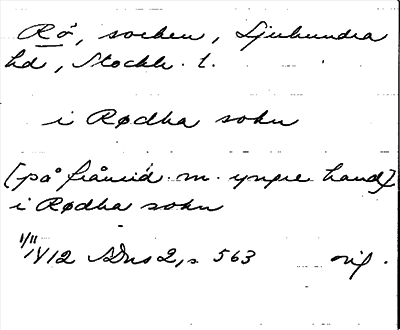 Rö, socken, Sjuhundra
hd, Stockh. l.
i Rødha sokn
[på frånsid. m. yngre hand]
i Rødha sokn
1/11 1412 SDns 2, s 563 orig.